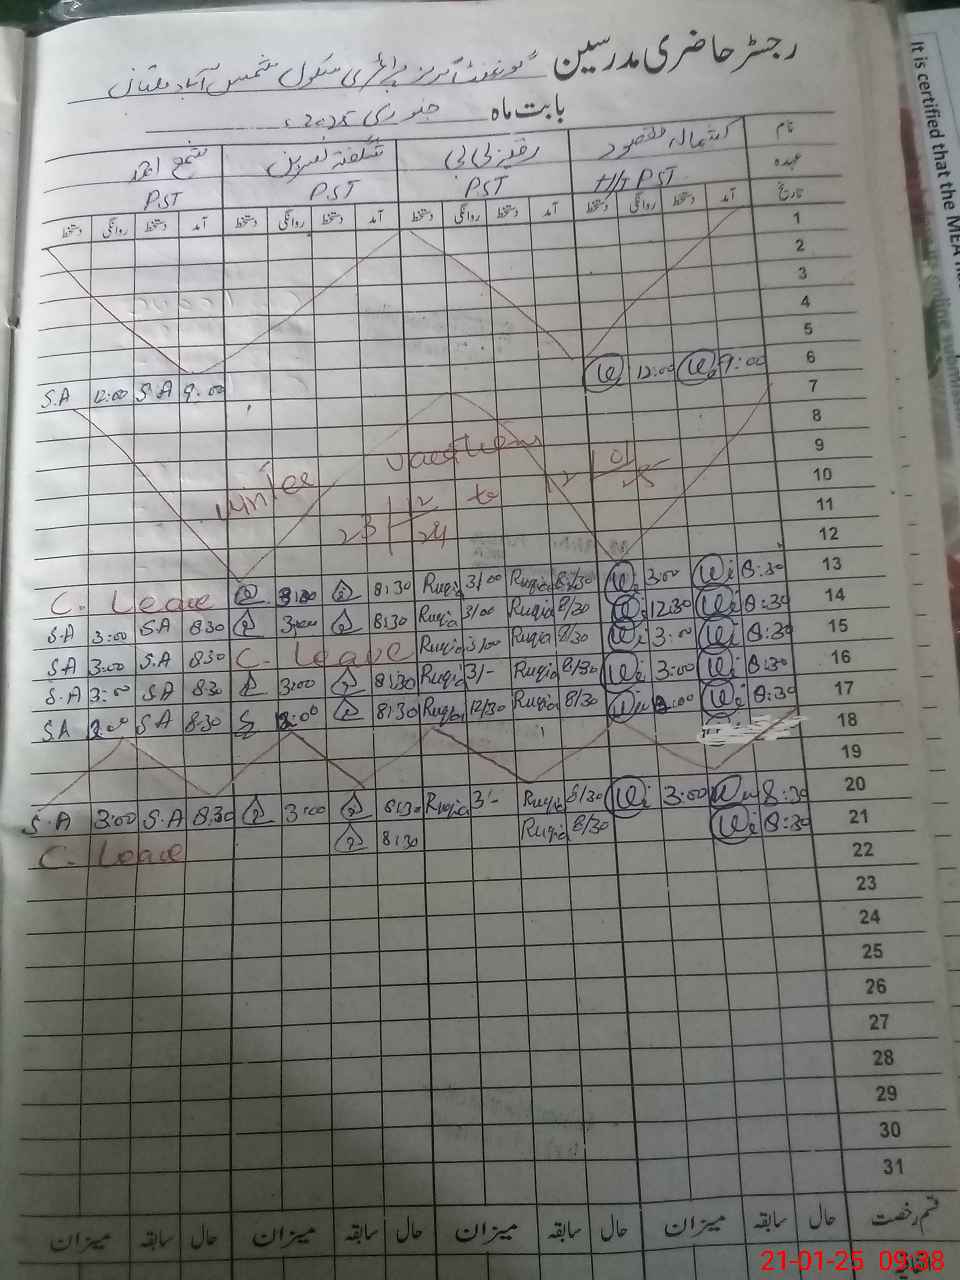 رجسٹر حاضری مدرسین گورنمنٹ گرلز پرائمری سکول شمس آباد ملتان
بابت ماہ جنوری 2025ء
نام شمائلہ مقصود رقیہ بی بی شگفتہ نسرین شمع احمد
عہدہ H/T PST PST PST PST
تاریخ آمد دستخط روانگی دستخط آمد دستخط روانگی دستخط آمد دستخط روانگی دستخط آمد دستخط روانگی دستخط
1
2
3
4
5
6
S.A 12:00 S.A 9:00 12:00 9:00
7
8
9
winter vacations
10
23/12/24 to 12/01/25
11
12
C. Leave 8:30 Ruqia 3/00 Ruqia 8/30 3:00 8:30 13
S.A 3:00 S.A 8:30 3:00 8:30 Ruqia 3/00 Ruqia 8/30 12:30 8:30 14
S.A 3:00 S.A 8:30 C. Leave Ruqia 3/00 Ruqia 8/30 3:00 8:30 15
S.A 3:00 S.A 8:30 3:00 8:30 Ruqia 3/- Ruqia 8/30 3:00 8:30 16
S.A S.A 8:30 8:30 Ruqia 12/30 Ruqia 8/30 8:30 17
18
19
S.A 3:00 S.A 8:30 3:00 8:30 Ruqia 3/- Ruqia 8/30 3:00 8:30 20
C. Leave 8:30 Ruqia 8/30 8:30 21
22
23
24
25
26
27
28
29
30
31
قسم رخصت حال سابقہ میزان حال سابقہ میزان حال سابقہ میزان حال سابقہ میزان
21-01-25 09:38
It is certified that the MEA has